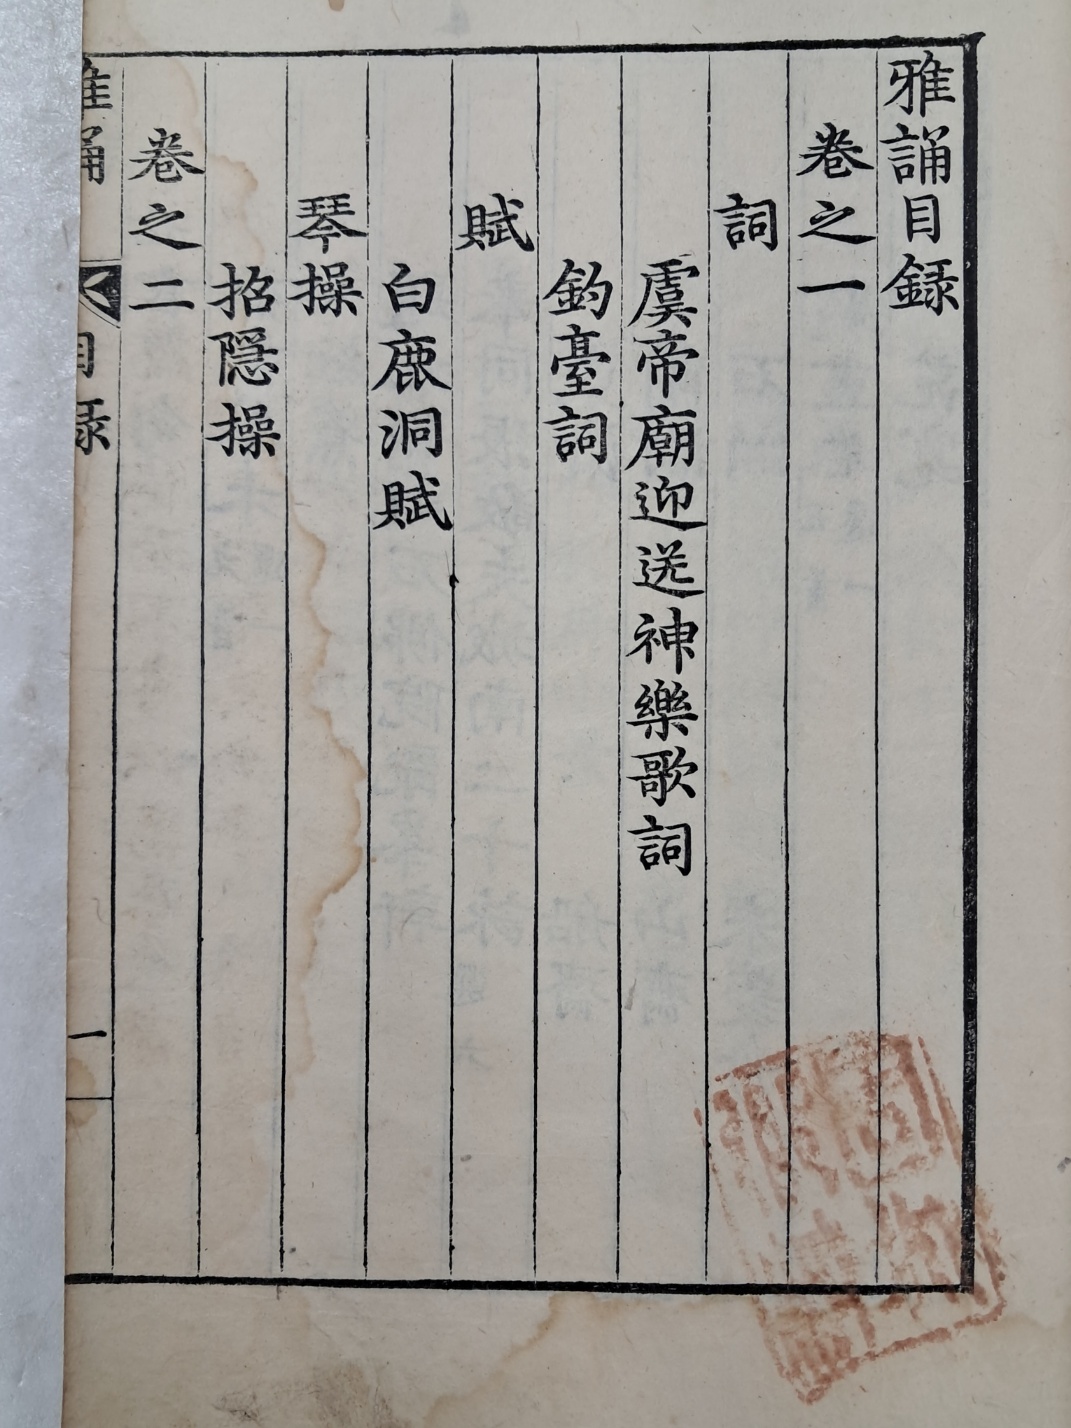 雅誦目録
卷之一
詞
虞帝廟迎送神樂歌詞
釣臺詞
賦
白鹿洞賦
琴操
招隱操
卷之二
雅誦
目録
一